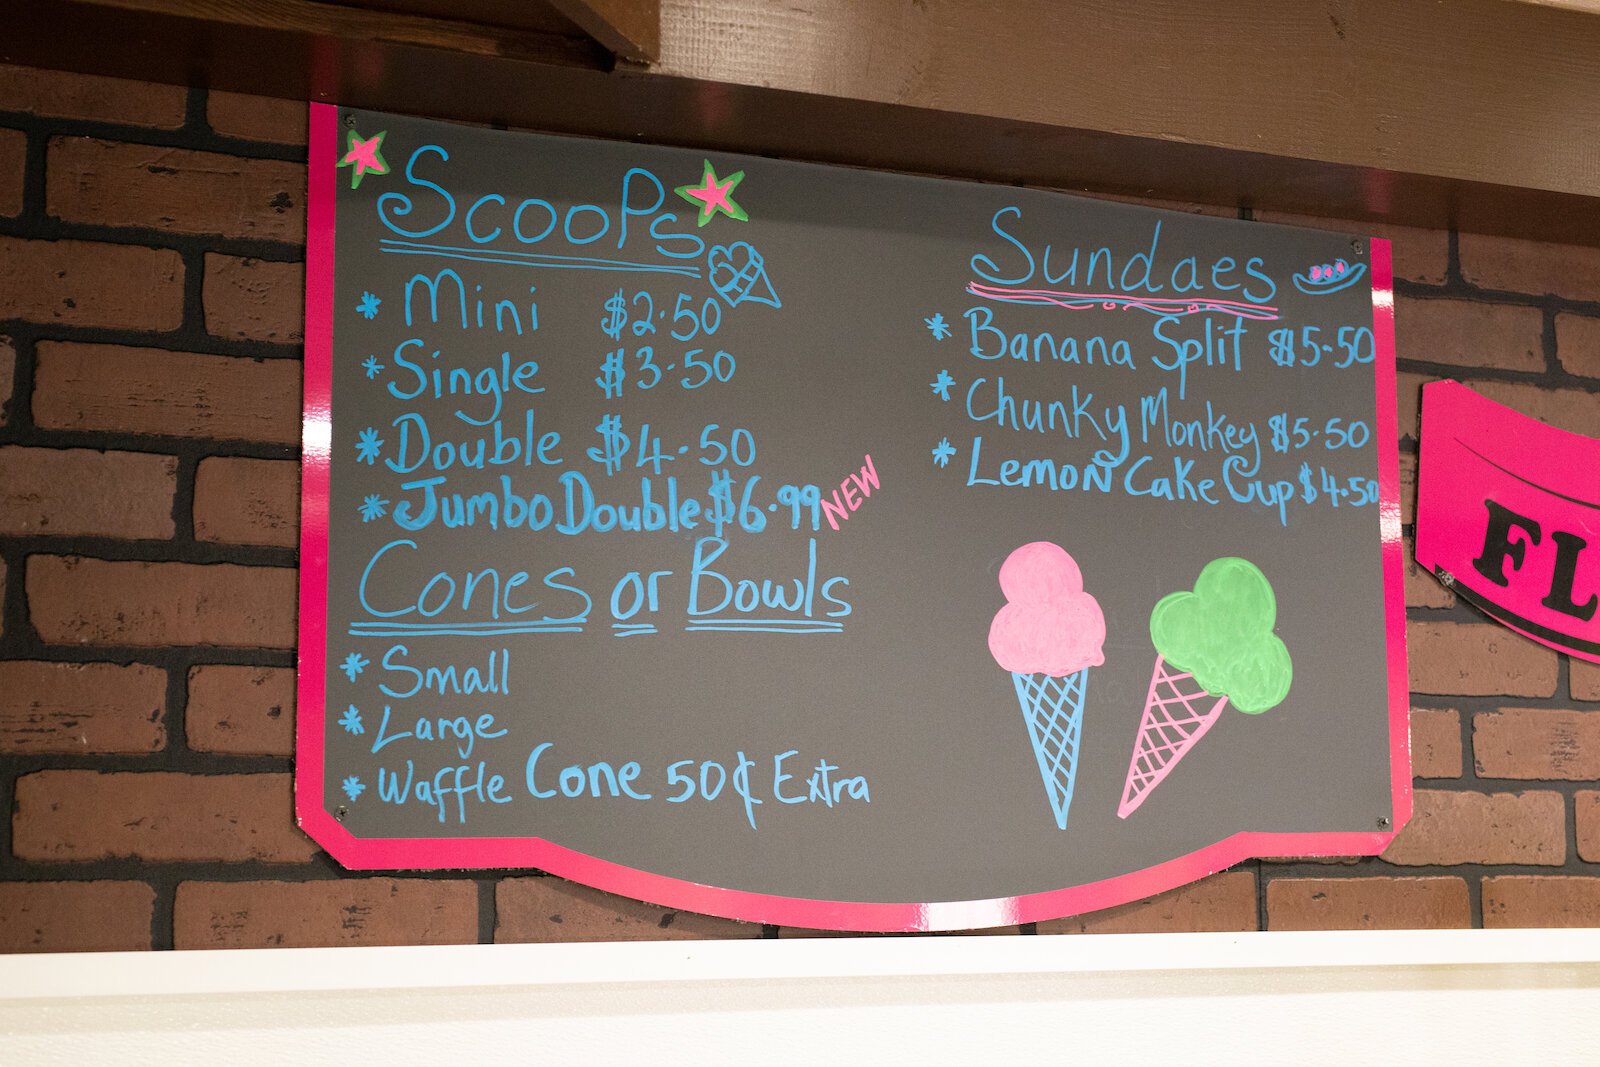 Scoops
* Mini $2.50
* Single $3.50
* Double $4.50
* Jumbo Double $6.99 NEW
Cones or Bowls
* Small
* Large
* Waffle Cone 50¢ Extra
Sundaes
* Banana Split $5.50
* Chunky Monkey $5.50
* Lemon Cake Cup $4.50
FL